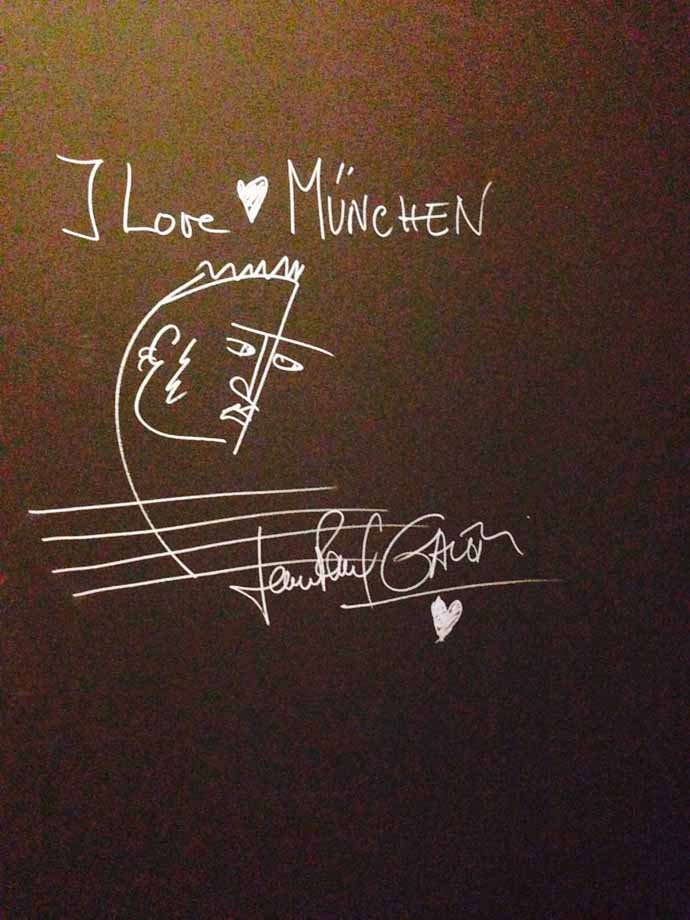 I Love ♥ MÜNCHEN
Jean Paul GAULTIER